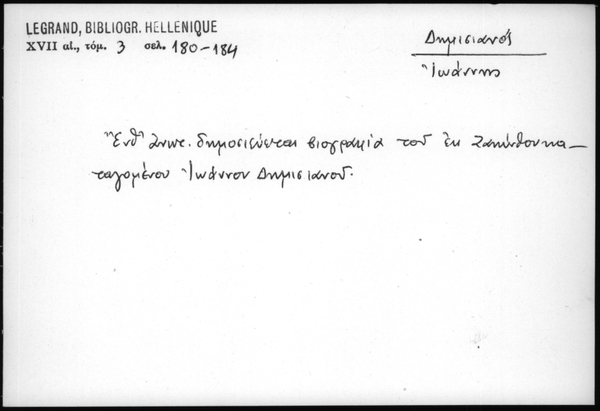 LEGRAND, BIBLIOGR. HELLENIQUE
XVII αἰ., τόμ. 3 σελ. 180-184
Δημισιανός
Ἰωάννης
Ἔνθ' ἀνωτ. δημοσιεύεται βιογραφία τοῦ ἐκ Ζακύνθου κα-
ταγομένου Ἰωάννου Δημισιανοῦ.